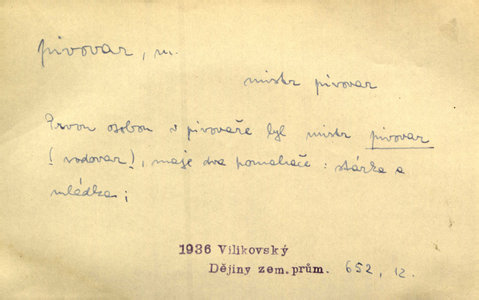 pivovar, m.
mistr pivovar
Prvou osobou v pivováře byl mistr pivovar
(vodovar), maje dva pomahače: stárka a
mládka;
1936 Vilikovský
Dějiny zem. prům. 652, 12.